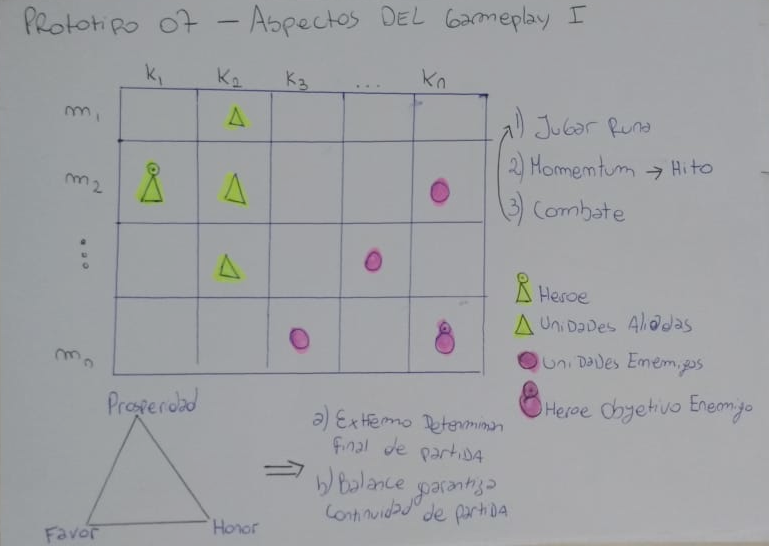 Prototipo 07 - Aspectos DEL Gameplay I
K1 K2 K3 ... Kn
m1
m2
mn
1) Jugar Runa
2) Momentum → Hito
3) Combate
Heroe
Unidades Aliadas
Unidades Enemigas
Heroe Objetivo Enemigo
Prosperidad
Favor
Honor
a) Extremo Determinan
final de partida
b) Balance garantiza
continuidad de partida